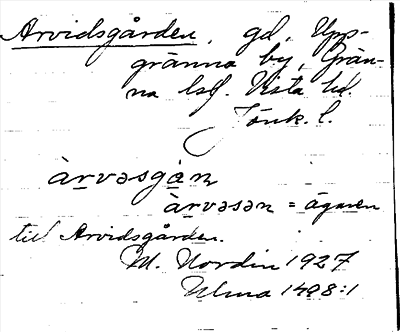 Arvidsgården, gd, Upp-
gränna by, Grän-
na lsf. Vista hd.
Jönk. l.
àrvəsgan
àrvəsən = ägaren
till Arvidsgården.
M. Nordin 1927
Ulma 1498:1